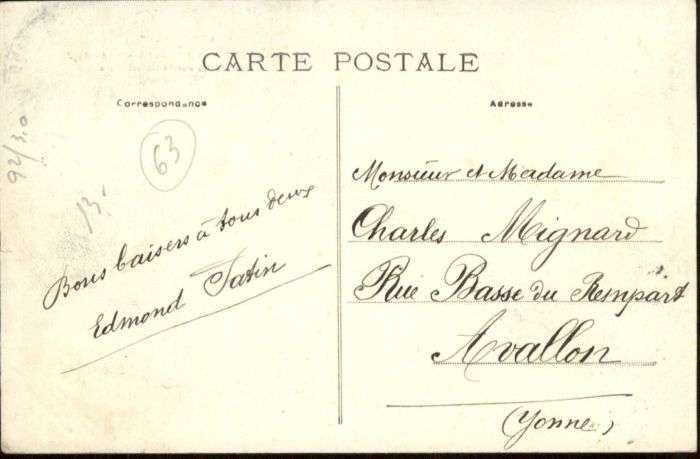 CARTE POSTALE
Correspondance
Adresse
92/3,0
63
13.
Bons baisers à tous deux
Edmond Tatin
Monsieur et Madame
Charles Mignard
Rue Basse du Rempart
Avallon
(Yonne)